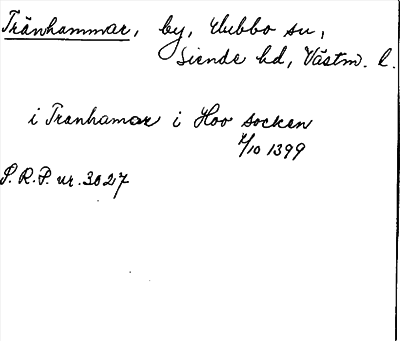 Tränhammar, by, Hubbo sn,
Siende hd, Västm. l.
i Tranhamar i Hoo socken
4/10 1399
S.R.P. nr. 3027